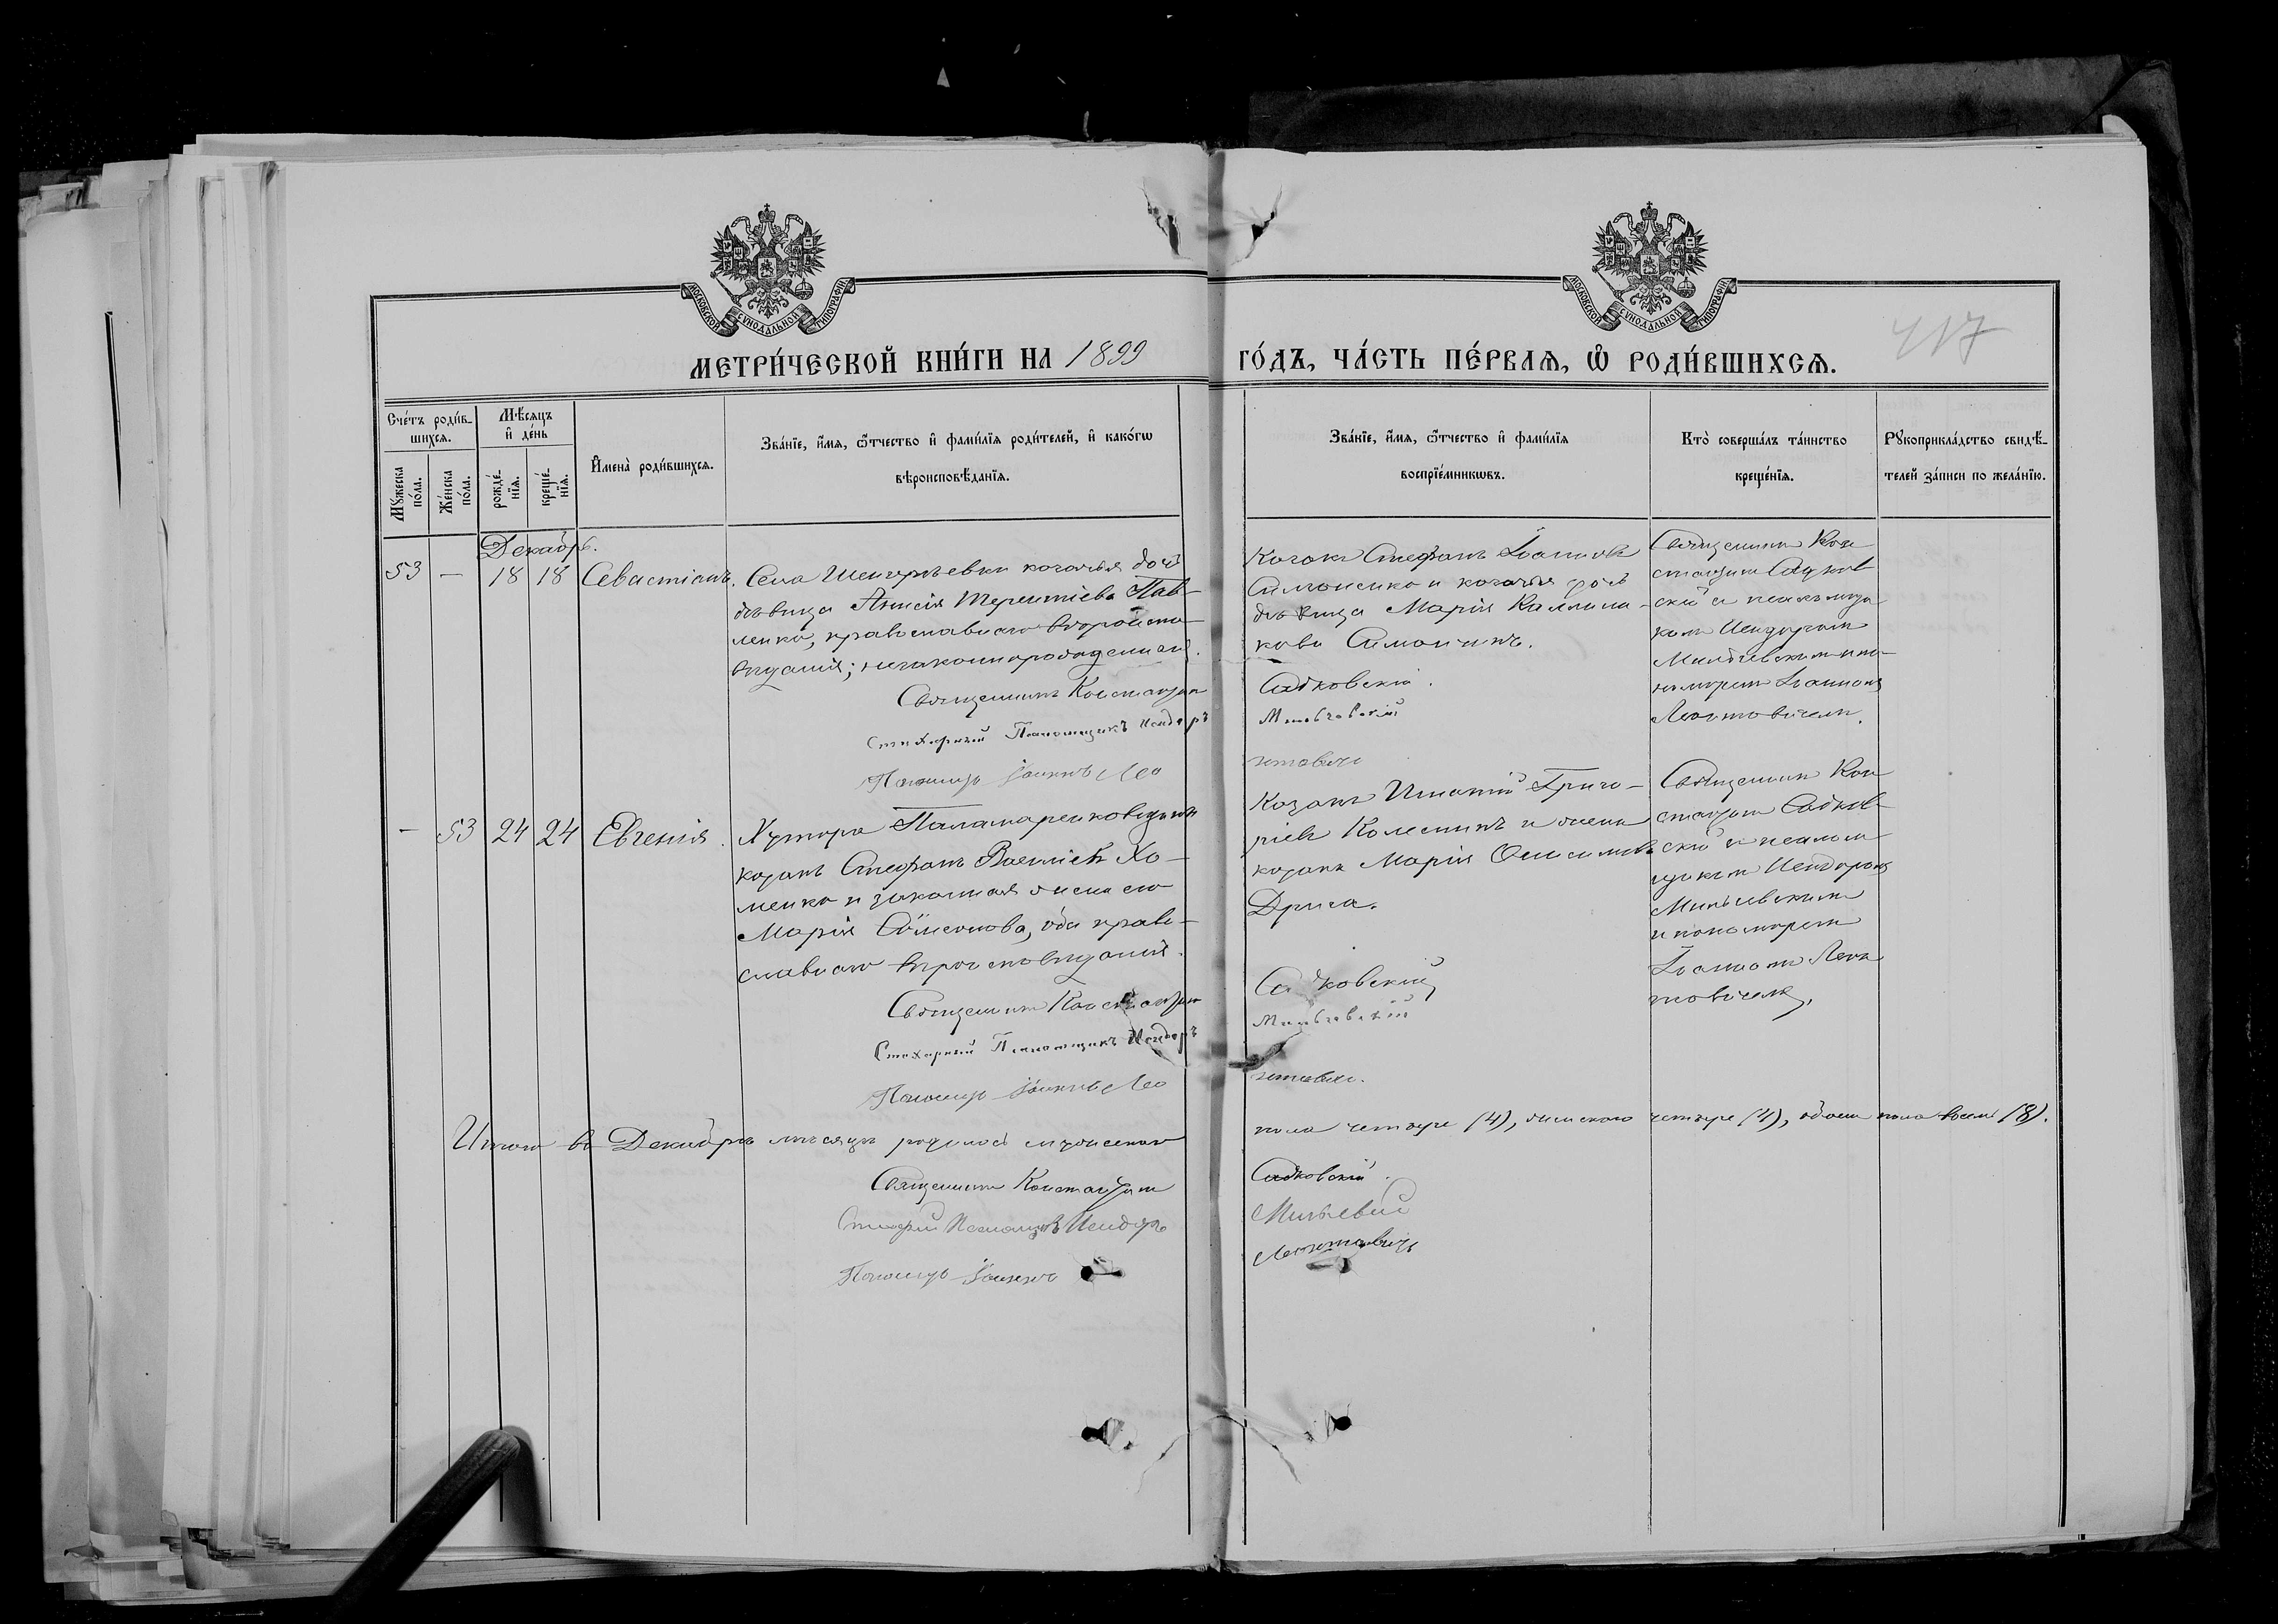 МОСКОВСКОЙ СУНОДАЛЬНОЙ ТИПОГРАФІИ
МОСКОВСКОЙ СУНОДАЛЬНОЙ ТИПОГРАФІИ
417
МЕТРИ́ЧЕСКОЙ КНИ́ГИ НА 1899
ГО́ДЪ, ЧА́СТЬ ПЕ́РВАѦ, Ѽ РОДИ́ВШИХСѦ.
Сче́тъ роди́в-
шихсѧ.
Мѣ́сѧцъ
и҆ де́нь
Мꙋ́жеска
по́ла.
Же́нска
по́ла.
рожде́-
нїѧ.
креще́-
нїѧ.
И҆мена̀ роди́вшихсѧ.
Зва́нїе, и҆́мѧ, ѻ҆́тчество и҆ фами́лїѧ роди́телей, и҆ како́гѡ
вѣроисповѣ́данїѧ.
Зва́нїе, и҆́мѧ, ѻ҆́тчество и҆ фами́лїѧ
воспрїе́мникѡвъ.
Кто̀ соверша́лъ та́инство
креще́нїѧ.
Рꙋкоприкла́дство свидѣ́-
телей за́писи по жела́нїю.
Декабрь.
53 — 18 18 Севастіанъ.
Села козачья дочь
дѣвица Анисія Терентіева Пав-
ленко, православнаго вѣроиспо-
вѣданія; незаконнорожденный.
Священникъ Константинъ
Стихарный Псаломщикъ Исидоръ
Пономарь Іоаннъ Лео
Козакъ Стефанъ Іоанновъ
Симоненко и козачья дочь
дѣвица Марія
кова
Садковскій.
Мильчевскій
нтовичъ
Священникъ Кон
стантинъ Садков
скій и псаломщи
комъ Исидоромъ
Мильчевскимъ и по-
номаремъ Іоанномъ
Леонтовичемъ.
— 53 24 24 Евгенія.
Хутора
козакъ Стефанъ Васильевъ Хо-
менко и законная жена его
Марія Симеонова, оба право-
славнаго вѣроисповѣданія.
Священникъ Константинъ
Стихарный Псаломщикъ Исидоръ
Пономарь Іоаннъ Лео
Козакъ Игнатій Григо-
ріевъ Колесникъ и жена
козака Марія Онисимова
Друга.
Садковскій
Мильчевскій
нтовичъ.
Священникъ Кон
стантинъ Садков
скій и псалом
щикомъ Исидоромъ
Мильчевскимъ
и пономаремъ
Іоанномъ Леон
товичемъ.
Итого въ Декабрѣ мѣсяцѣ родилось мужескаго
пола четыре (4), женскаго четыре (4), обоего пола восемь (8).
Священникъ Константинъ
Садковскій.
Стихарный Псаломщикъ Исидоръ
Мильчевскій
Пономарь Іоаннъ
Леонтовичъ